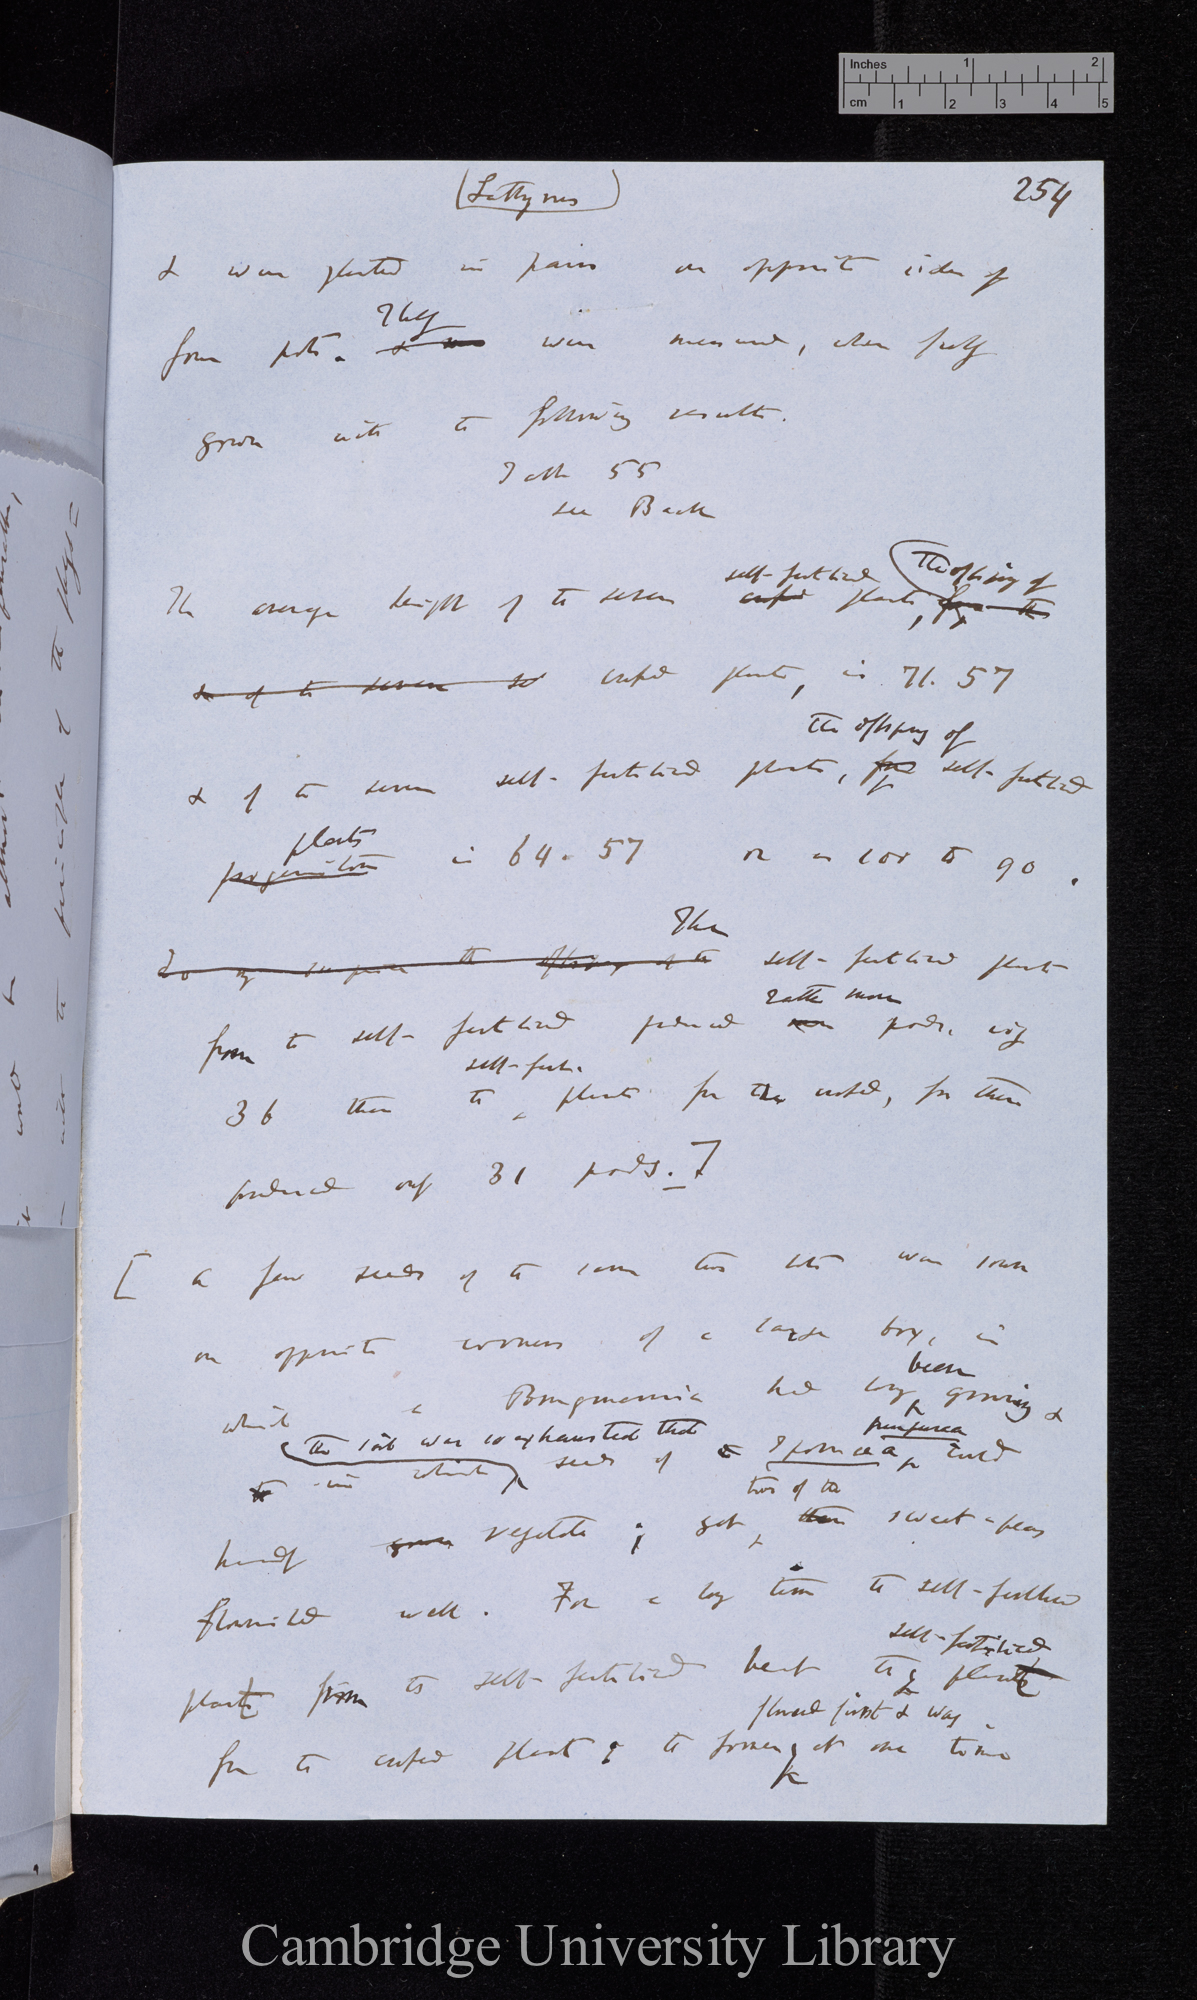 Inches 1 2
cm 1 2 3 4 5
(Lathyrus) 254
& were planted in pairs on opposite sides of
They
four pots. & were measured, when fully
grown with the following results.
Table 55
see Back
self-fertilised (the offspring of
The average height of the seven crossed plants, from the
& of the seven se crossed plants, is 71.57
the offspring of
& of the seven self-fertilised plants, from self-fertilised
plants
progenitors is 64.57 or as 100 to 90.
The
To my surprise the offspring of the self-fertilised plants
rather more
from the self-fertilised produced more pods, viz
self-fert.
36 than the plants from the crossed, for these
produced only 31 pods.]
[A few seeds of the same two lots were sown
on opposite corners of a large box, in
been
which a Brugmansia had long growing &
the soil was so exhausted that purpurea
in which seeds of Ipomoea could
two of the
hardly grow vegetate; yet sweet-peas
flourished well. For a long time the self-fertilised
self-fertilised
plant from the self-fertilised beat the plant
flowered first & was
from the crossed plant; the former at one time
Cambridge University Library